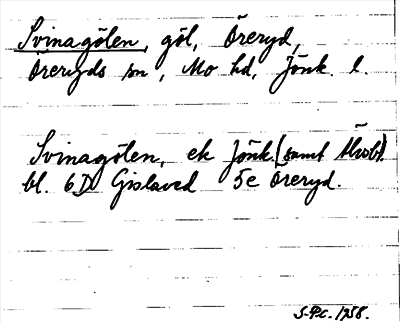 Svinagölen, göl, Öreryd,
Öreryds sn, Mo hd, Jönk. l.
Svinagölen, ek Jönk. (samt Älvsb).
bl. 6D Gislaved 5e Öreryd.
1958.